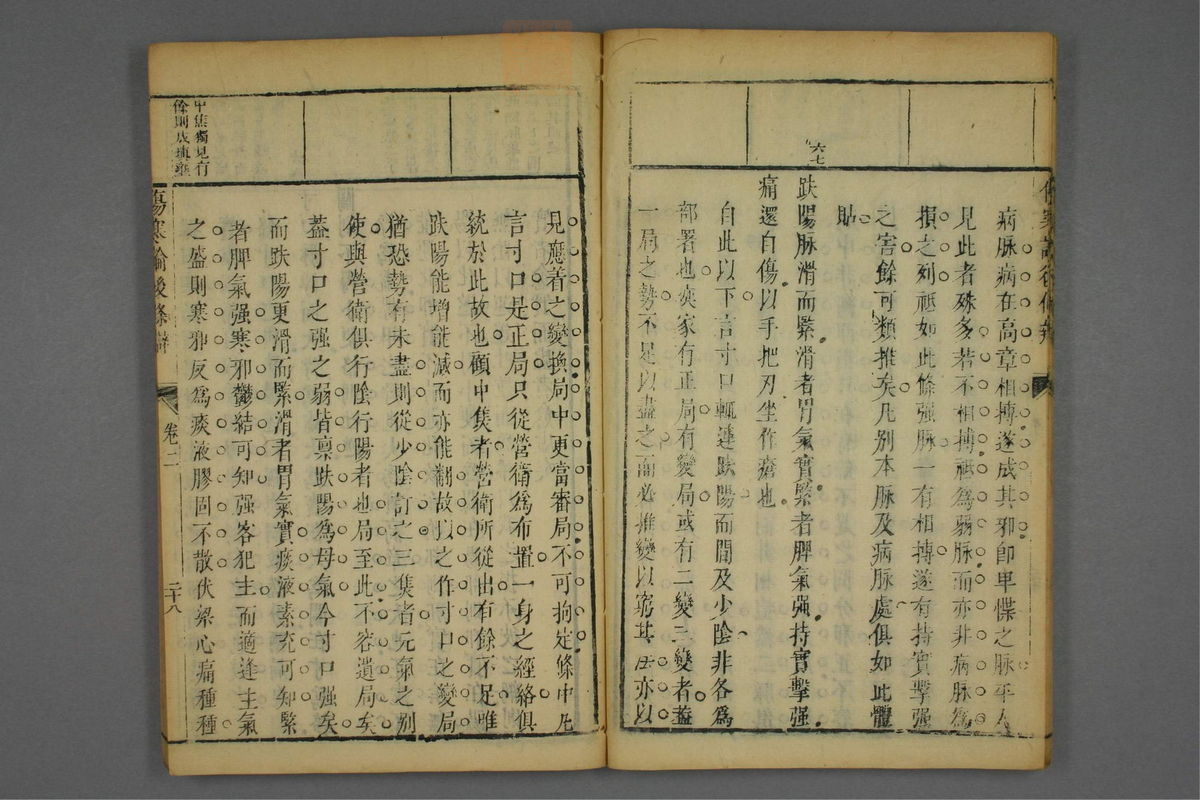 六七
病脉病在高章相搏遂成其邪卽單惵之脉平人
見此者殊多若不相搏祗爲弱脉而亦非病脉爲
損之列祗如此條强脉一有相搏遂有持實擊强
之害餘可類推矣凡别本脉及病脉處俱如此體
貼
趺陽脉滑而緊滑者胃氣實緊者脾氣强持實擊强
痛還自傷以手把刃坐作瘡也
自此以下言寸口輒連趺陽而間及少陰非各爲
部署也奕家有正局有變局或有二變三變者葢
一局之勢不足以盡之而必推變以窮其亦以
見應着之變換局中更當審局不可拘定條中凡
言寸口是正局只從營衞爲布置一身之經絡俱
統於此故也顧中焦者營衞所從出有餘不足唯
趺陽能增能減而亦能翻故以之作寸口之變局
猶恐勢有未盡則從少陰訂之三焦者元氣之别
使與營衞俱行陰行陽者也局至此不容遺局矣
葢寸口之强之弱皆禀趺陽爲母氣今寸口强矣
而趺陽更滑而緊滑者胃氣實痰液素充可知緊
者脾氣强寒邪鬱結可知强客犯主而適逢主氣
之盛則寒邪反爲痰液膠固不散伏梁心痛種種
中焦獨見有
餘則成壅
傷寒論後條辯
卷二
二十八